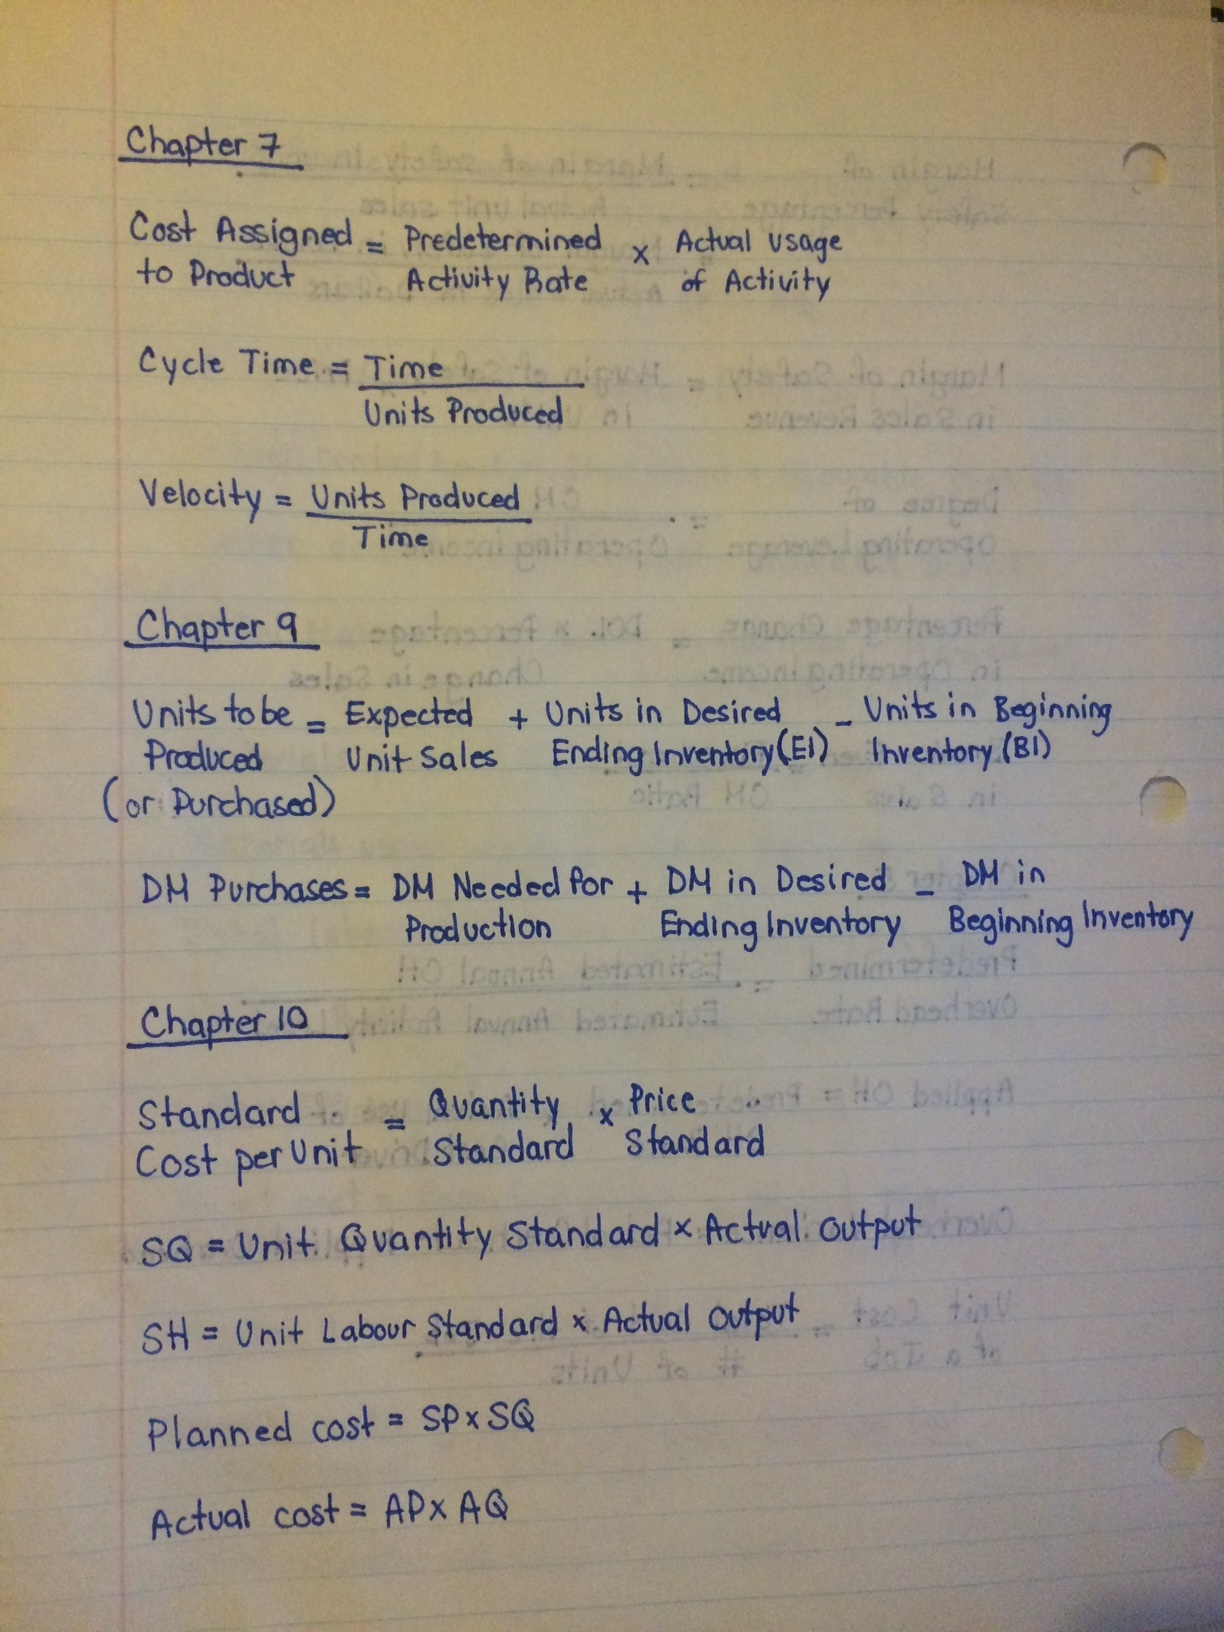 Chapter 7
Cost Assigned = Predetermined x Actual Usage
to Product Activity Rate of Activity
Cycle Time = Time
Units Produced
Velocity = Units Produced
Time
Chapter 9
Units to be = Expected + Units in Desired - Units in Beginning
Produced Unit Sales Ending Inventory (EI) Inventory (BI)
(or Purchased)
DM Purchases = DM Needed for + DM in Desired - DM in
Production Ending Inventory Beginning Inventory
Chapter 10
Standard = Quantity x Price
Cost per Unit Standard Standard
SQ = Unit Quantity Standard x Actual Output
SH = Unit Labour Standard x Actual Output
Planned cost = SP x SQ
Actual cost = AP x AQ